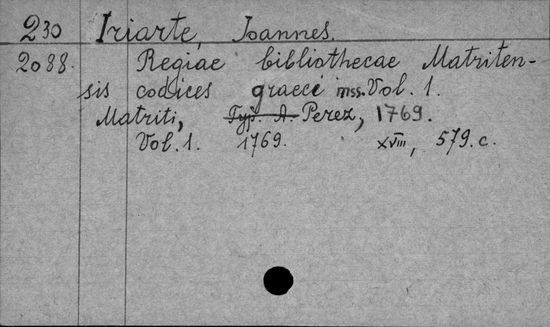 230 Iriarte, Ioannes.
2088. Regiae bibliothecae Matriten-
sis codices graeci mss. Vol. 1.
Matriti, Typ. A. Perez, 1769.
Vol. 1. 1769. XVIII, 579. c.